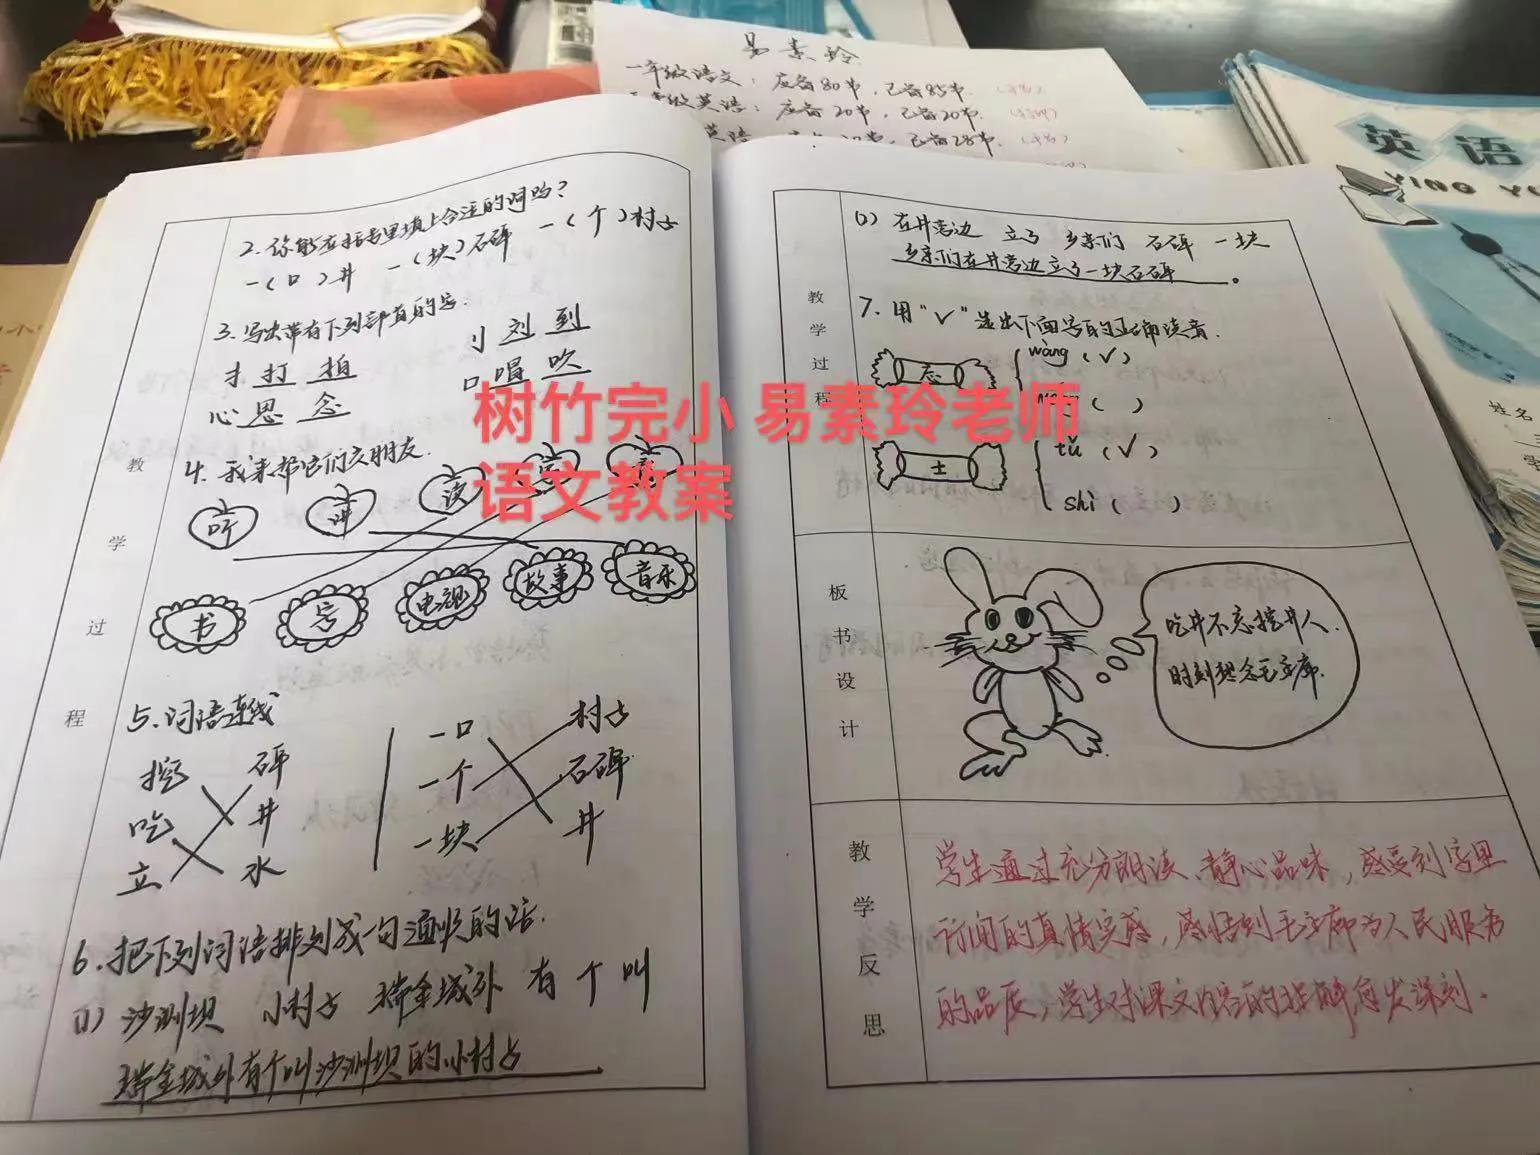 易素玲
一年级语文：应备80节，已备85节.
级英语：应备20节，已备20节.
英语
已备28节.
英语
YING YU
姓名
树竹完小 易素玲老师
语文教案
教学过程
2. 你能在括号里填上合适的词吗？
一（口）井 一（块）石碑 一（个）村子
3. 写出带有下列部首的字
扌 打 拍 刂 刘 到
心 思 念 口 唱 吹
4. 我来帮它们交朋友.
听 讲 读 写 看
书 字 电视 故事 音乐
5. 词语连线
挖 碑 一口 村子
吃 井 一个 石碑
立 水 一块 井
6. 把下列词语排列成一句通顺的话.
(1) 沙洲坝 小村子 瑞金城外 有 个 叫
瑞金城外有个叫沙洲坝的小村子
教学过程
(1) 在井旁边 立了 乡亲们 石碑 一块
乡亲们在井旁边立了一块石碑。
7. 用“√”选出下面字的正确读音.
忘 wàng（√）
（ ）
土 tǔ（√）
shì（ ）
板书设计
吃井不忘挖井人.
时刻想念毛主席.
教学反思
学生通过充分朗读、静心品味，感受到字里
行间的真情实感，感悟到毛主席为人民服务
的品质，学生对课文内容的理解愈发深刻.